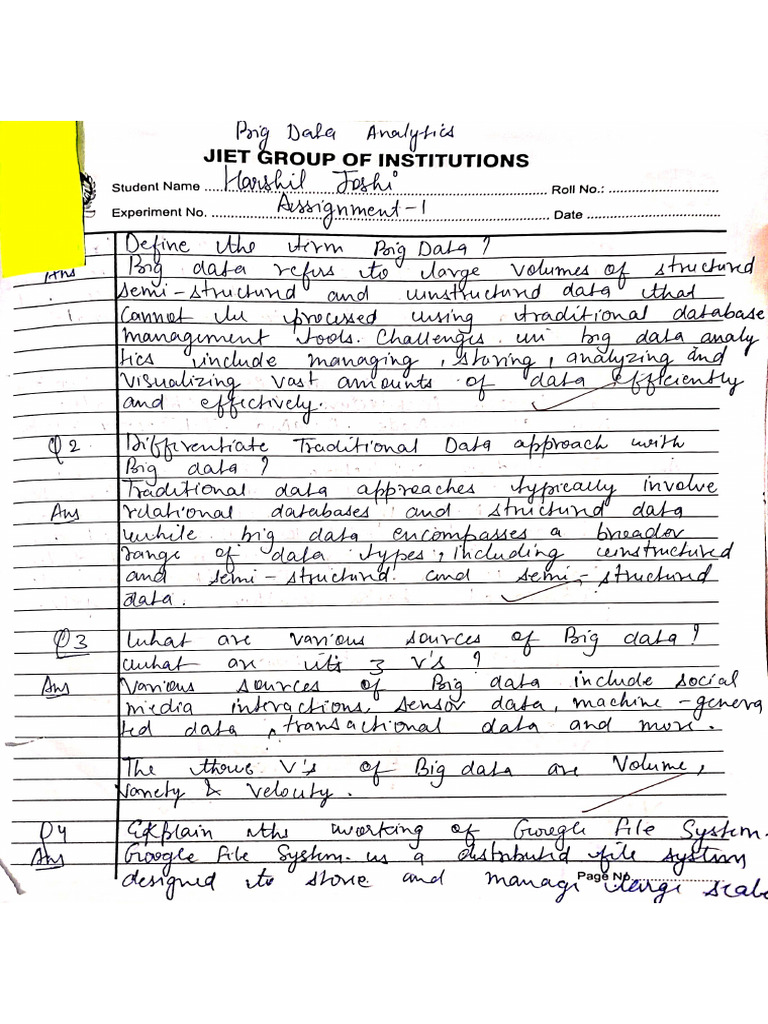 Big Data Analytics
JIET GROUP OF INSTITUTIONS
Student Name Harshil Joshi Roll No.:
Experiment No. Assignment-1 Date
Define the term Big Data?
Ans Big data refers to large volumes of structured
semi-structured and unstructured data that
cannot be processed using traditional database
management tools. Challenges in big data analy
tics include managing, storing, analyzing and
visualizing vast amounts of data efficiently
and effectively.
Q2 Differentiate Traditional Data approach with
Big data?
Traditional data approaches typically involve
Ans relational databases and structured data
while big data encompasses a breader
range of data types, including unstructured
and semi-structured. and semi-structured
data.
Q3 What are various sources of Big data?
What are it's 3 V's?
Ans Various sources of Big data include social
media interactions, sensor data, machine-genera
ted data, transactional data and more.
The three V's of Big data are Volume,
Variety & Velocity.
Q4 Explain the working of Google File System.
Ans Google File System. is a distributed file system
designed to store and manage large scale
Page No.